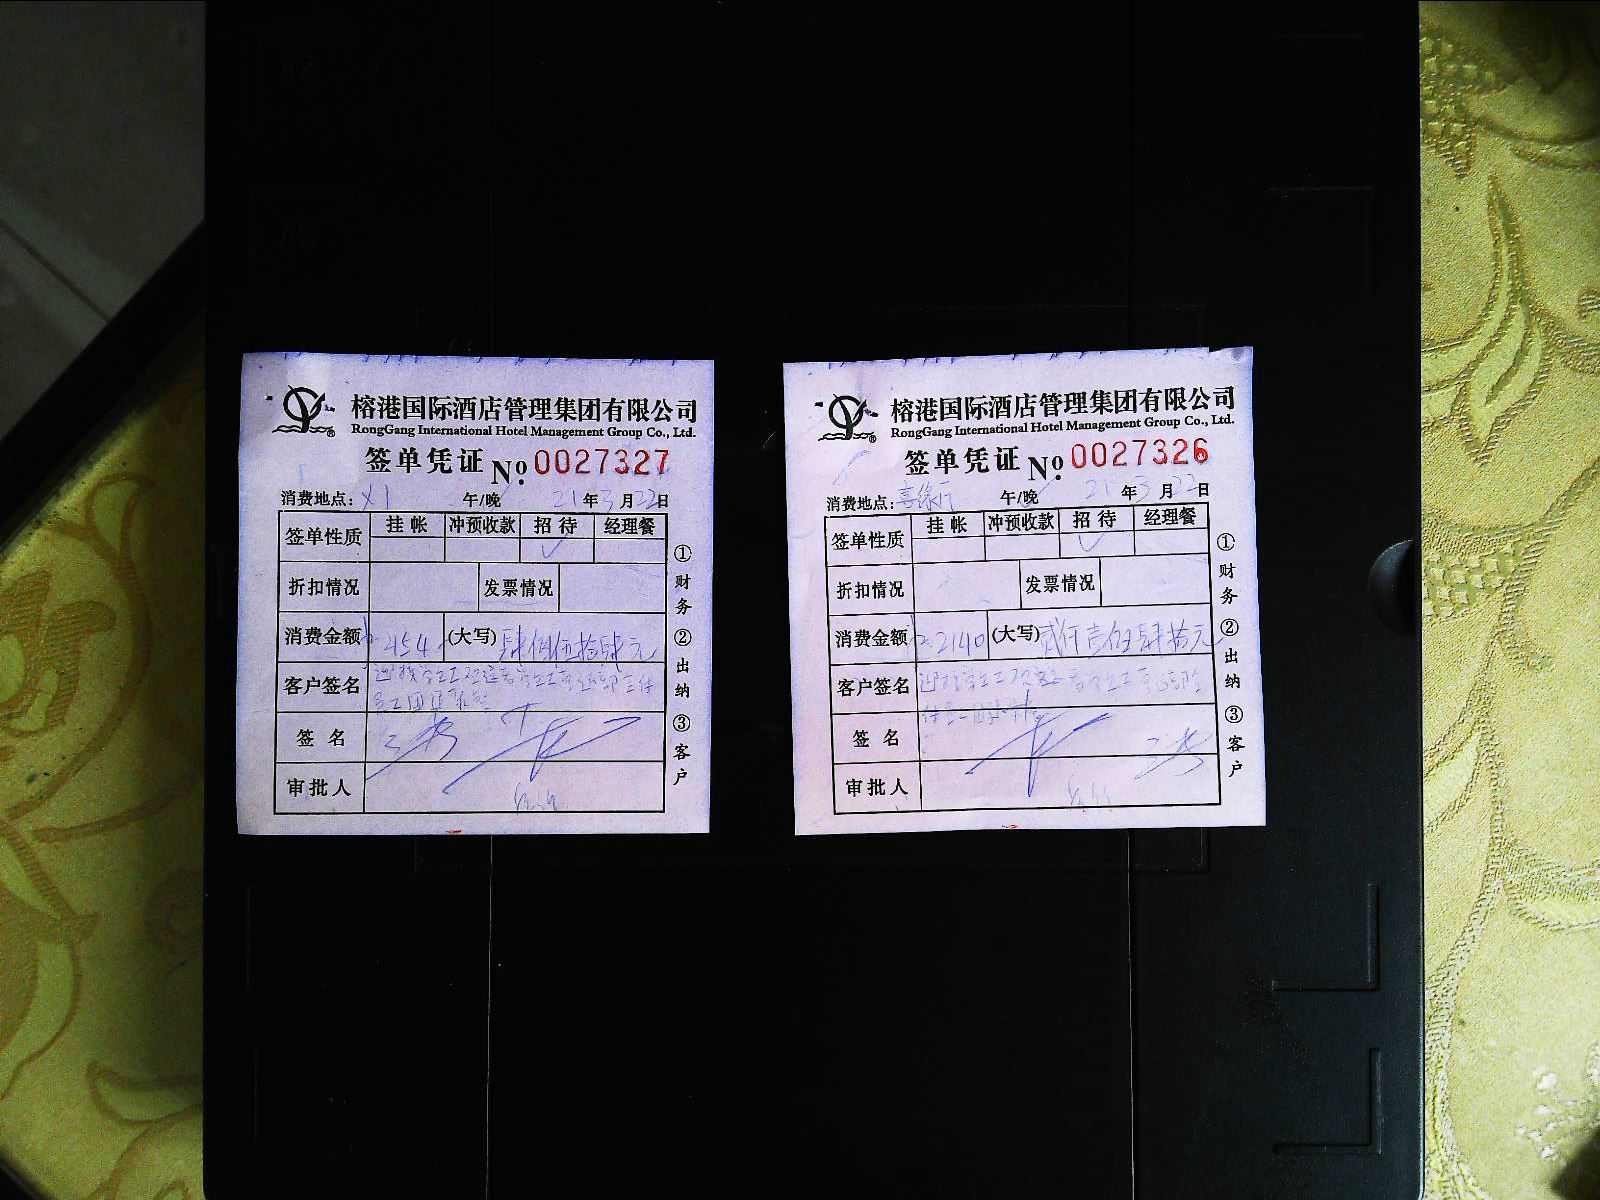 榕港国际酒店管理集团有限公司
RongGang International Hotel Management Group Co., Ltd.
签单凭证 No. 0027327
消费地点: X1 午/晚 21年3月22日
签单性质 挂帐 冲预收款 招待 经理餐
✓
折扣情况 发票情况
消费金额 454 (大写) 肆佰伍拾肆元
客户签名
员工团
签名
审批人
①财务 ②出纳 ③客户
榕港国际酒店管理集团有限公司
RongGang International Hotel Management Group Co., Ltd.
签单凭证 No. 0027326
消费地点: 喜缘厅 午/晚 21年3月22日
签单性质 挂帐 冲预收款 招待 经理餐
✓
折扣情况 发票情况
消费金额 2140 (大写) 贰仟壹佰肆拾元
客户签名
签名
审批人
①财务 ②出纳 ③客户